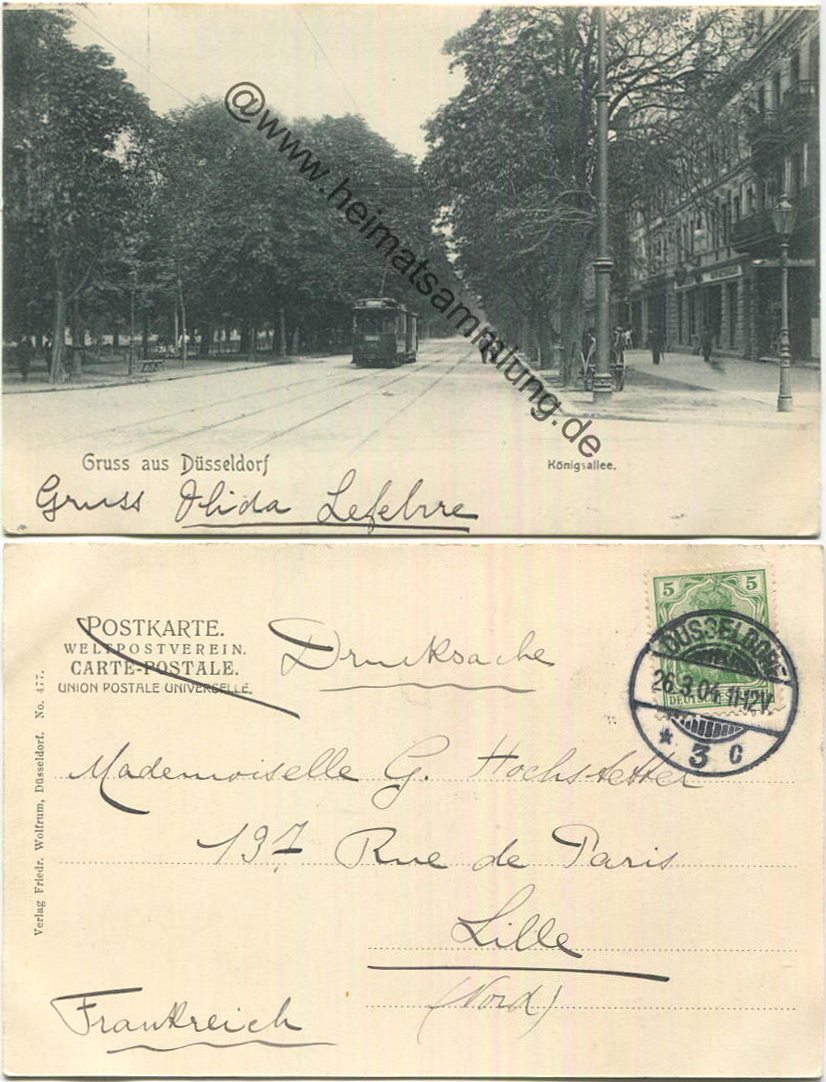 @www.heimatsammlung.de
Gruss aus Düsseldorf
Königsallee.
Gruss Olida Lefebvre
POSTKARTE.
WELTPOSTVEREIN.
CARTE-POSTALE.
UNION POSTALE UNIVERSELLE.
Drucksache
5 5
DEUTSCHES
DÜSSELDORF
26.3.04.11-12V.
* 3 c
Verlag Friedr. Wolfrum, Düsseldorf. No. 477.
Mademoiselle G. Hochstetter
197 Rue de Paris
Lille
(Nord)
Frankreich